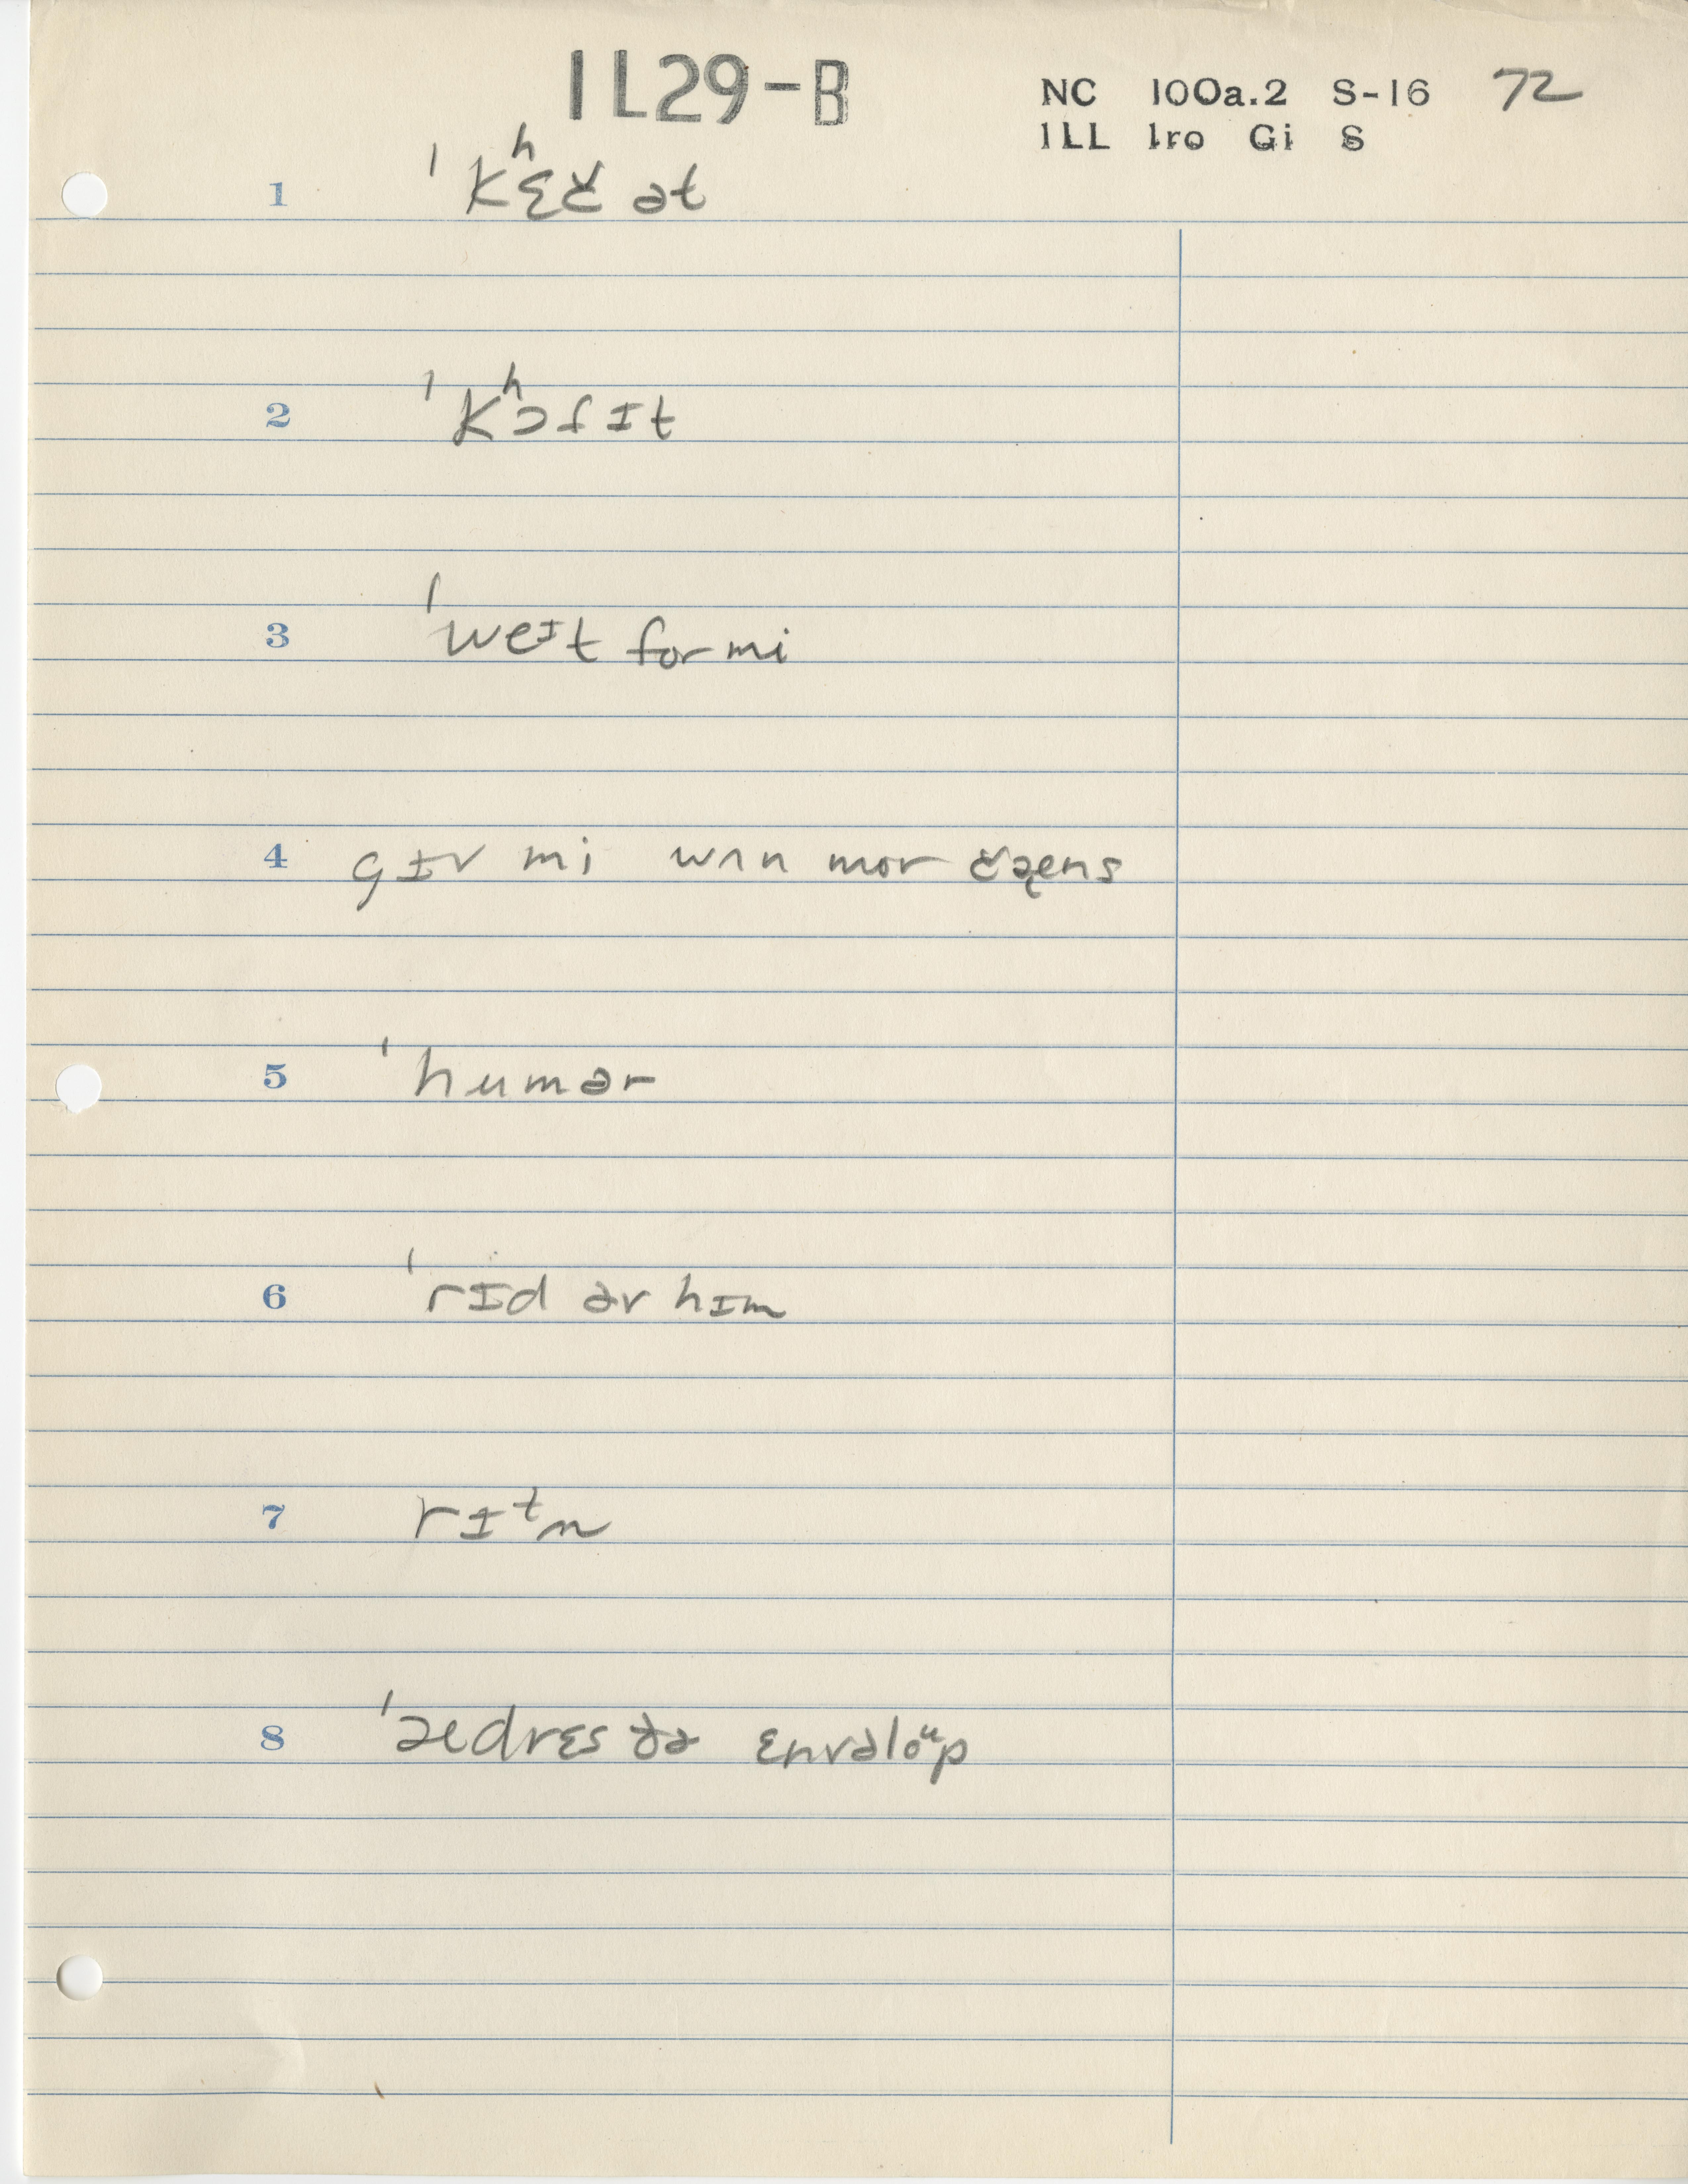 IL29-B
NC 100a.2 S-16 72
ILL Iro Gi S
1 ˈkʰɛč ət
2 ˈkʰɔf ɪt
3 ˈweɪt for mi
4 gɪv mi wʌn mor čæns
5 ˈhumər
6 ˈrɪd əv hɪm
7 rɪᵗn
8 ˈædrɛs ðə ɛnvəloᵘp